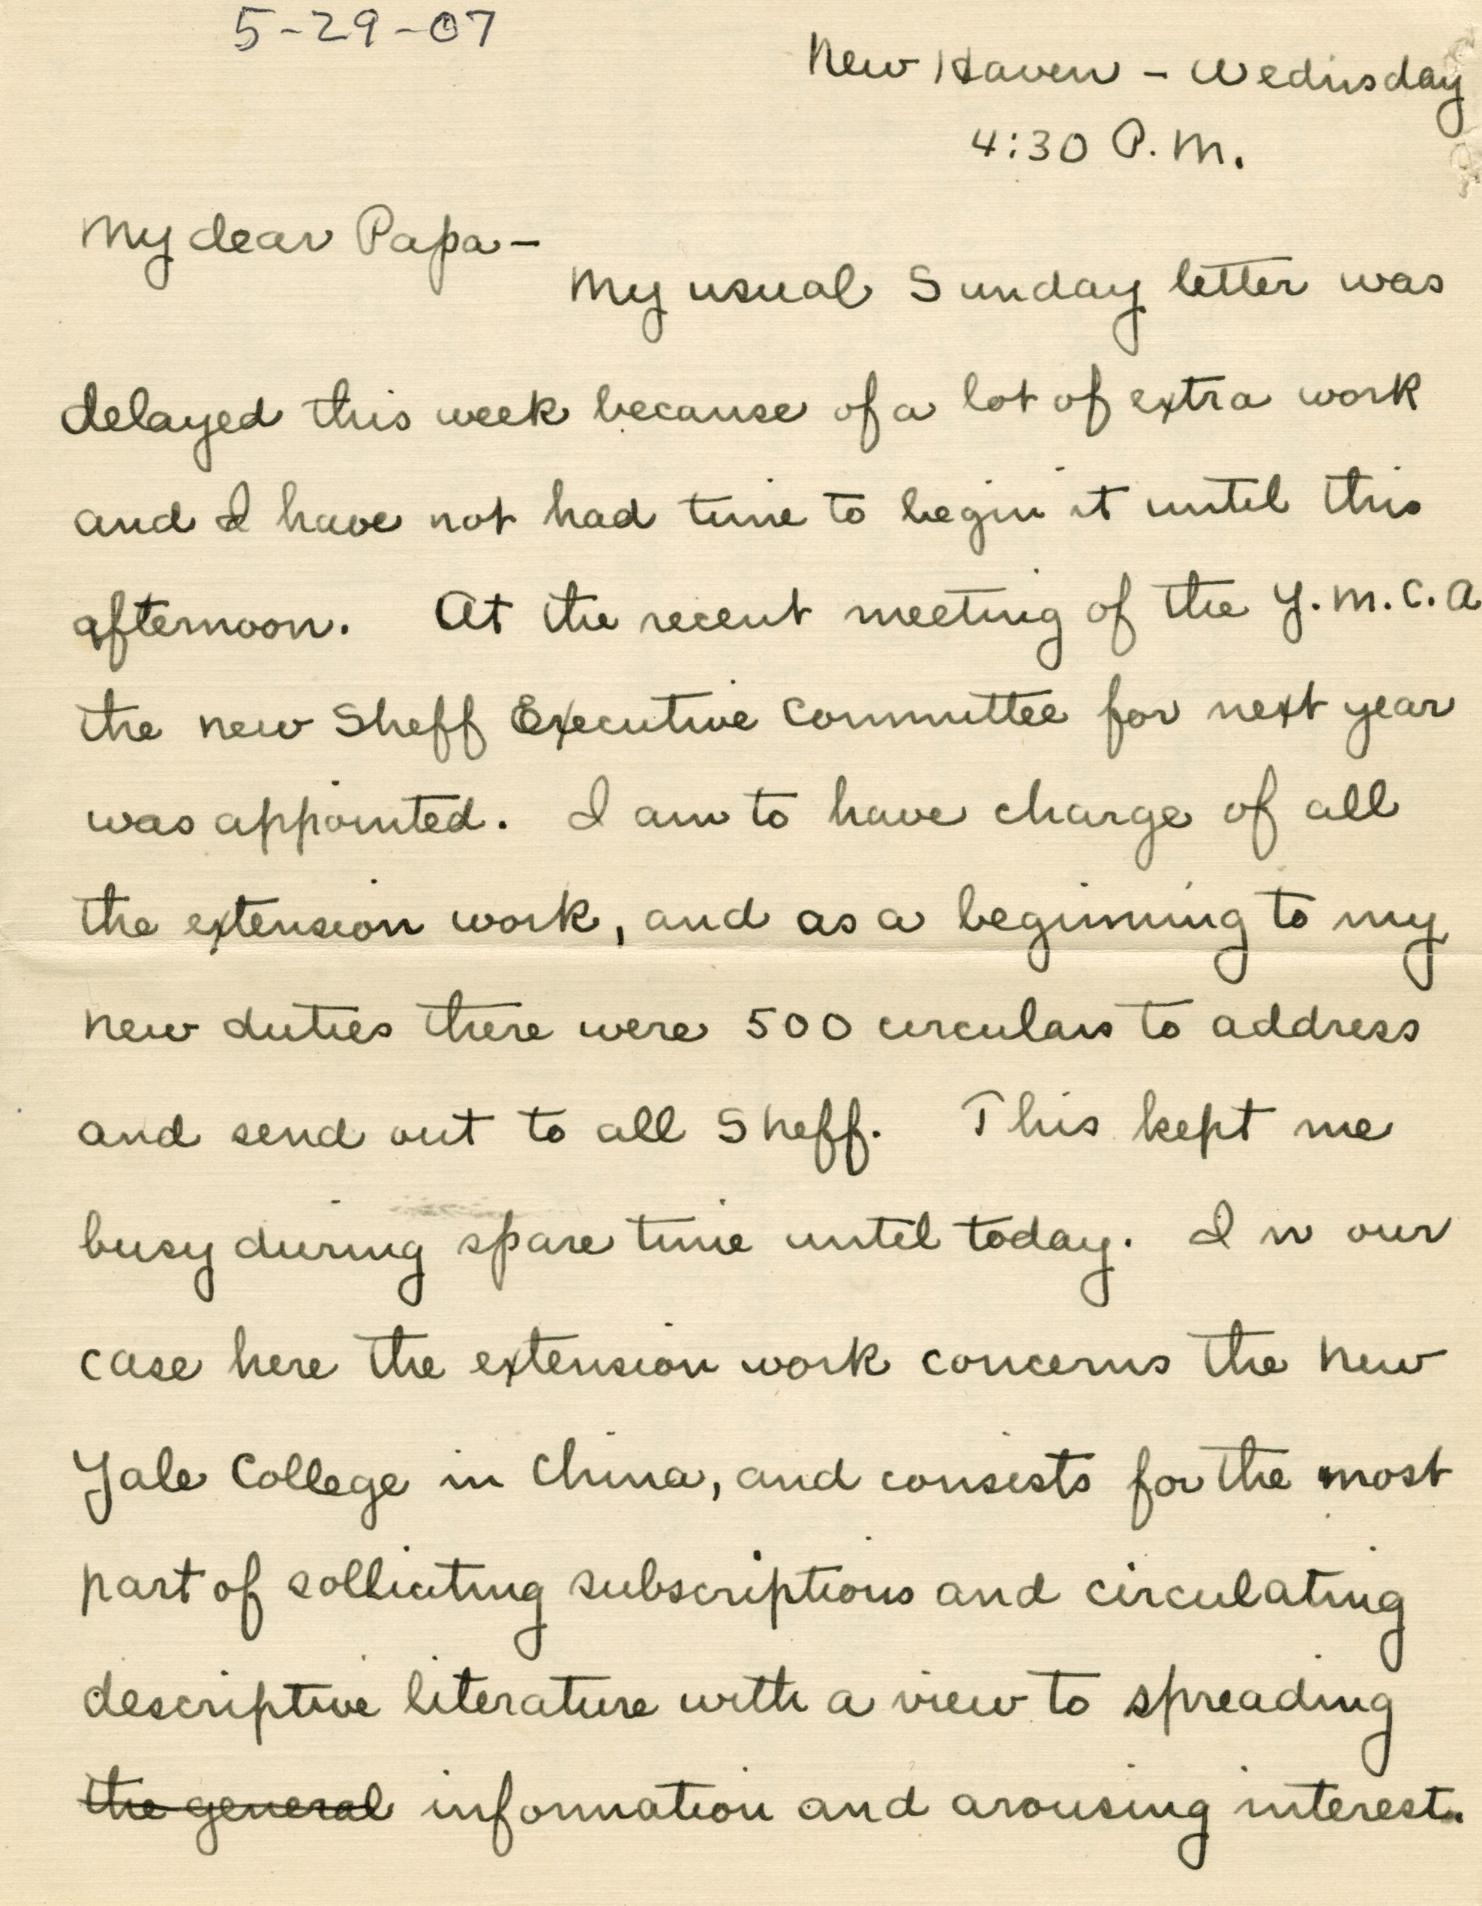 5-29-07
New Haven - Wednsday
4:30 P.M.
My dear Papa -
My usual Sunday letter was
delayed this week because of a lot of extra work
and I have not had time to begin it until this
afternoon. At the recent meeting of the Y.M.C.A
the new Sheff Executive Committee for next year
was appointed. I am to have charge of all
the extension work, and as a beginning to my
new duties there were 500 circulars to address
and send out to all Sheff. This kept me
busy during spare time until today. In our
case here the extension work concerns the new
Yale College in China, and consists for the most
part of solliciting subscriptions and circulating
descriptive literature with a view to spreading
the general information and arousing interest.